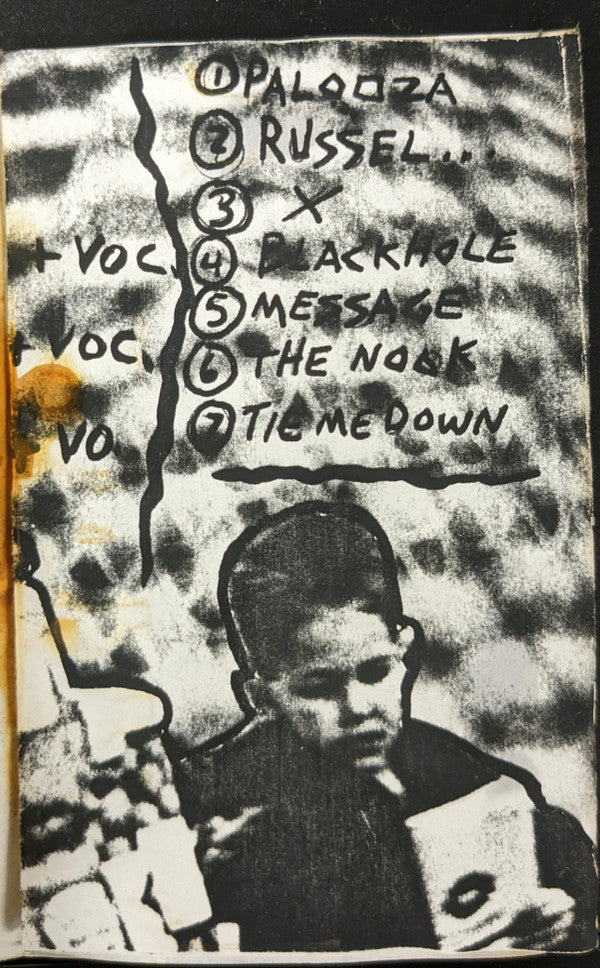 ① PALOOZA
② RUSSEL...
③ X
+ VOC. ④ BLACKHOLE
⑤ MESSAGE
+ VOC. ⑥ THE NOOK
+ VO ⑦ TIE ME DOWN